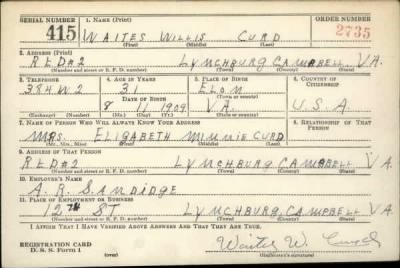 SERIAL NUMBER 1. Name (Print) ORDER NUMBER
415 WAITES WILLIS CURD 2735
(First) (Middle) (Last)
2. Address (Print)
RFD#2 LYNCHBURG CAMPBELL VA.
(Number and street or R. F. D. number) (Town) (County) (State)
3. Telephone 4. Age in Years 5. Place of Birth 6. Country of Citizenship
384W2 31 ELON
Date of Birth (Town or county)
8 1 1909 VA. U.S.A
(Exchange) (Number) (Mo.) (Day) (Yr.) (State or country)
7. Name of Person Who Will Always Know Your Address 8. Relationship of That Person
MRS. ELIZABETH MINNIE CURD
(Mr., Mrs., Miss) (First) (Middle) (Last)
9. Address of That Person
RFD#2 LYNCHBURG CAMPBELL VA
(Number and street or R. F. D. number) (Town) (County) (State)
10. Employer's Name
A. R. SANDIDGE
11. Place of Employment or Business
12TH ST LYNCHBURG CAMPBELL VA
(Number and street or R. F. D. number) (Town) (County) (State)
I Affirm That I Have Verified Above Answers and That They Are True.
REGISTRATION CARD
D. S. S. Form 1 (over) Waites W. Curd
(Registrant's signature)